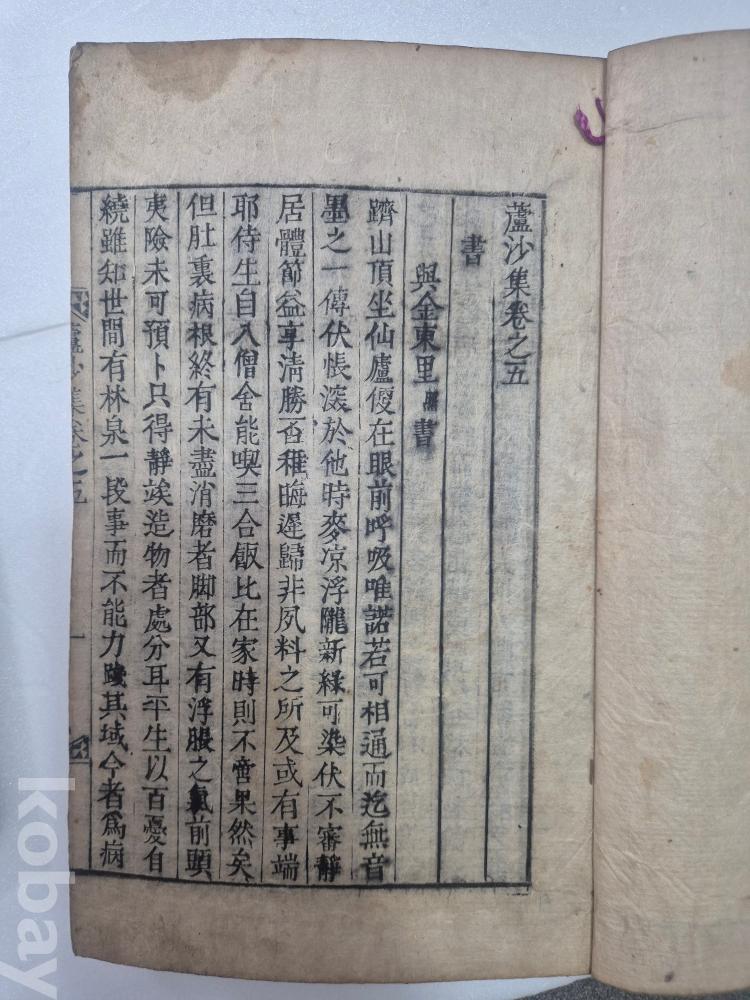 蘆沙集卷之五
書
與金東里書
躋山頂坐仙廬僾在眼前呼吸唯諾若可相通而迄無音
墨之一傳伏悵滚於他時麥凉浮隴新綠可染伏不審靜
居體節益享清勝否稚晦遲歸非夙料之所及或有事端
耶侍生自入僧舍能喫三合飯比在家時則不啻果然矣
但肚裏病根終有未盡消磨者脚部又有浮脹之氣前頭
夷險未可預卜只得靜竢造物者處分耳平生以百憂自
繞雖知世間有林泉一段事而不能力踐其域今者爲病
蘆沙集卷之五
一
kobay